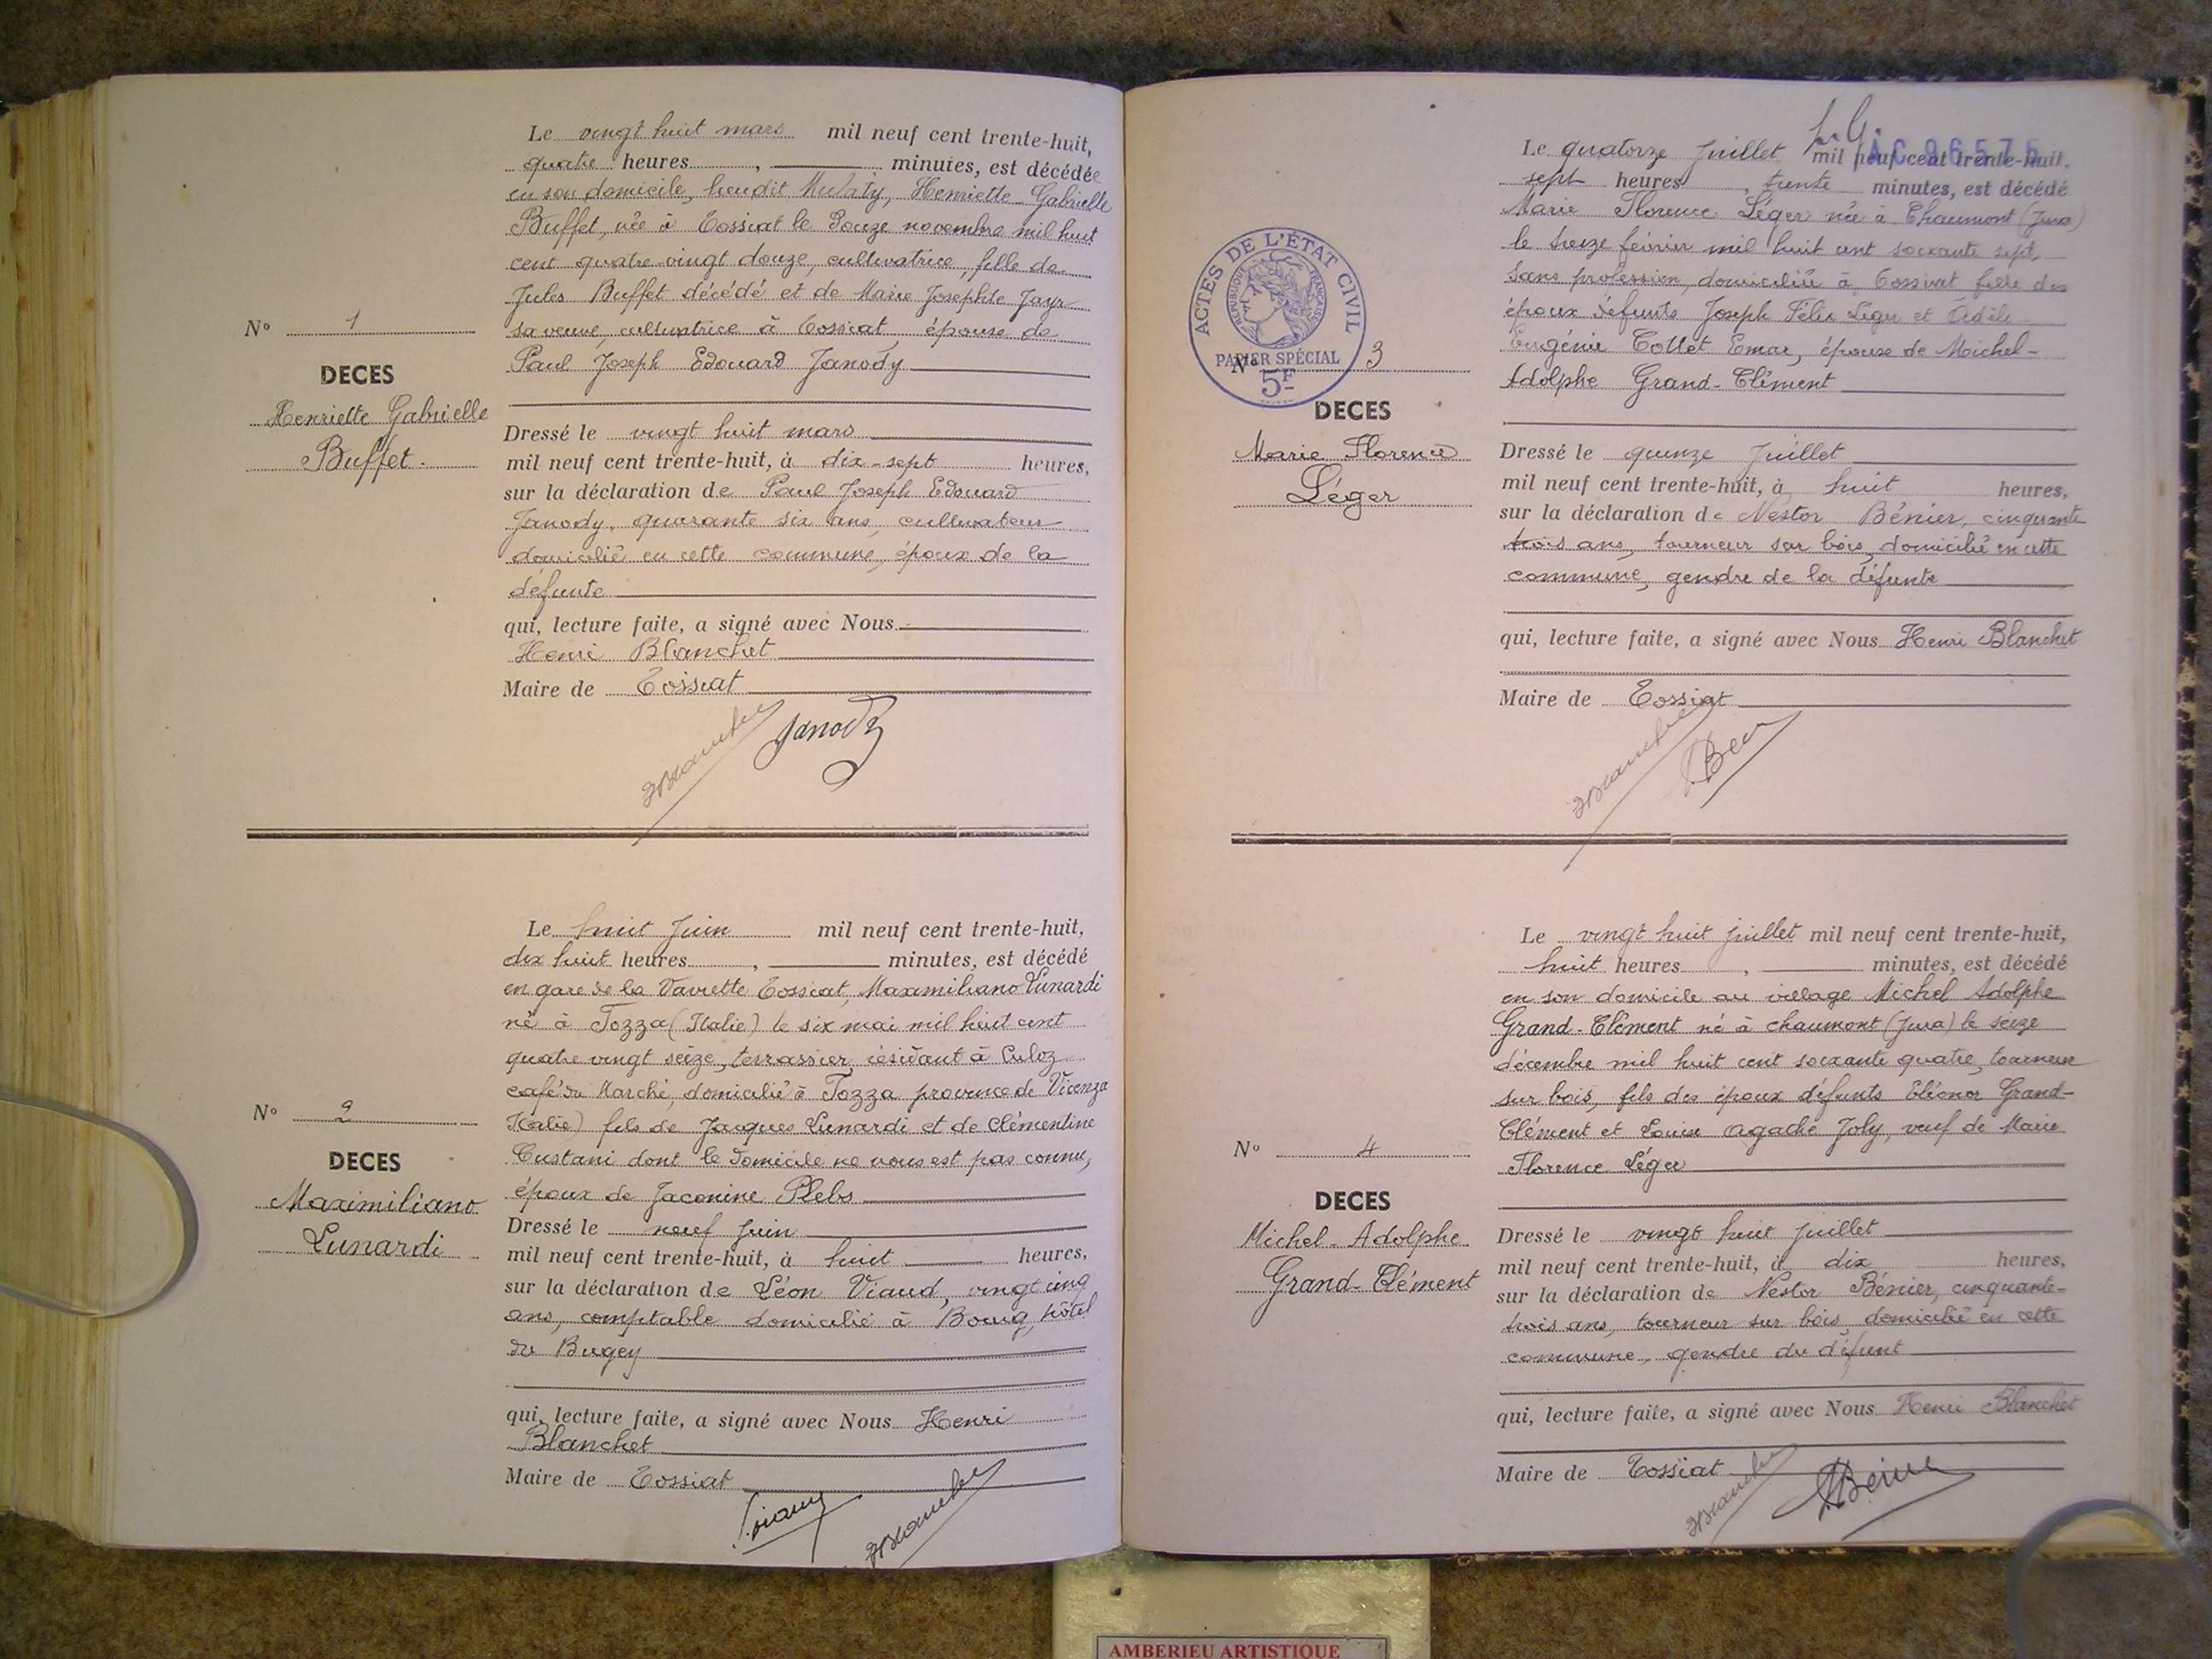 Le vingt huit mars mil neuf cent trente-huit,
quatre heures , minutes, est décédée
en son domicile, lieudit Mulaty, Henriette Gabrielle
Buffet, née à Tossiat le douze novembre mil huit
cent quatre-vingt douze, cultivatrice, fille de
Jules Buffet décédé et de Marie Josephte Jayr
sa veuve, cultivatrice à Tossiat, épouse de
Paul Joseph Edouard Janody
N° 1
DECES
Henriette Gabrielle
Buffet.
Dressé le vingt huit mars
mil neuf cent trente-huit, à dix-sept heures,
sur la déclaration de Paul Joseph Edouard
Janody, quarante six ans, cultivateur
domicilié en cette commune, époux de la
défunte
qui, lecture faite, a signé avec Nous
Henri Blanchet
Maire de Tossiat
HBlanchet Janody
Le huit Juin mil neuf cent trente-huit,
dix huit heures , minutes, est décédé
en gare de la Vavrette Tossiat, Maximiliano Lunardi
né à Tozza (Italie) le six mai mil huit cent
quatre vingt seize, terrassier, résidant à Culoz
café du Marché, domicilié à Tozza province de Vicenza
Italie) fils de Jacques Lunardi et de Clémentine
Custani dont le domicile ne nous est pas connu,
époux de Jaconine Plebs
N° 2
DECES
Maximiliano
Lunardi
Dressé le neuf Juin
mil neuf cent trente-huit, à huit heures,
sur la déclaration de Léon Viaud, vingt cinq
ans, comptable domicilié à Bourg, hôtel
du Bugey
qui, lecture faite, a signé avec Nous Henri
Blanchet
Maire de Tossiat
HBlanchet
AC 96575
Le quatorze Juillet mil neuf cent trente-huit,
sept heures , trente minutes, est décédé
Marie Florence Léger née à Chaumont (Jura)
le treize février mil huit cent soixante sept,
sans profession, domiciliée à Tossiat fille des
époux défunts Joseph Félix Léger et Adèle
Eugénie Collet Emar, épouse de Michel-
Adolphe Grand-Clément
ACTES DE L'ÉTAT CIVIL
RÉPUBLIQUE FRANÇAISE
PAPIER SPÉCIAL
5F
N° 3
DECES
Marie Florence
Léger
Dressé le quinze Juillet
mil neuf cent trente-huit, à huit heures,
sur la déclaration de Nestor Bénier, cinquante
trois ans, tourneur sur bois, domicilié en cette
commune, gendre de la défunte
qui, lecture faite, a signé avec Nous Henri Blanchet
Maire de Tossiat
HBlanchet
Le vingt huit juillet mil neuf cent trente-huit,
huit heures , minutes, est décédé
en son domicile au village Michel Adolphe
Grand-Clément né à chaumont (Jura) le seize
décembre mil huit cent soixante quatre, tourneur
sur bois, fils des époux défunts Eléonor Grand-
Clément et Louise Agathe Joly, veuf de Marie
Florence Léger
N° 4
DECES
Michel-Adolphe
Grand-Clément
Dressé le vingt huit juillet
mil neuf cent trente-huit, à dix heures,
sur la déclaration de Nestor Bénier, cinquante-
trois ans, tourneur sur bois, domicilié en cette
commune, gendre du défunt
qui, lecture faite, a signé avec Nous Henri Blanchet
Maire de Tossiat
HBlanchet
AMBERIEU ARTISTIQUE